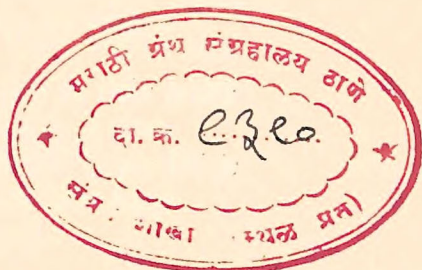 मराठी ग्रंथ संग्रहालय ठाणे
दा. क्र. ९३९०
शाखा स्थळ प्रत)